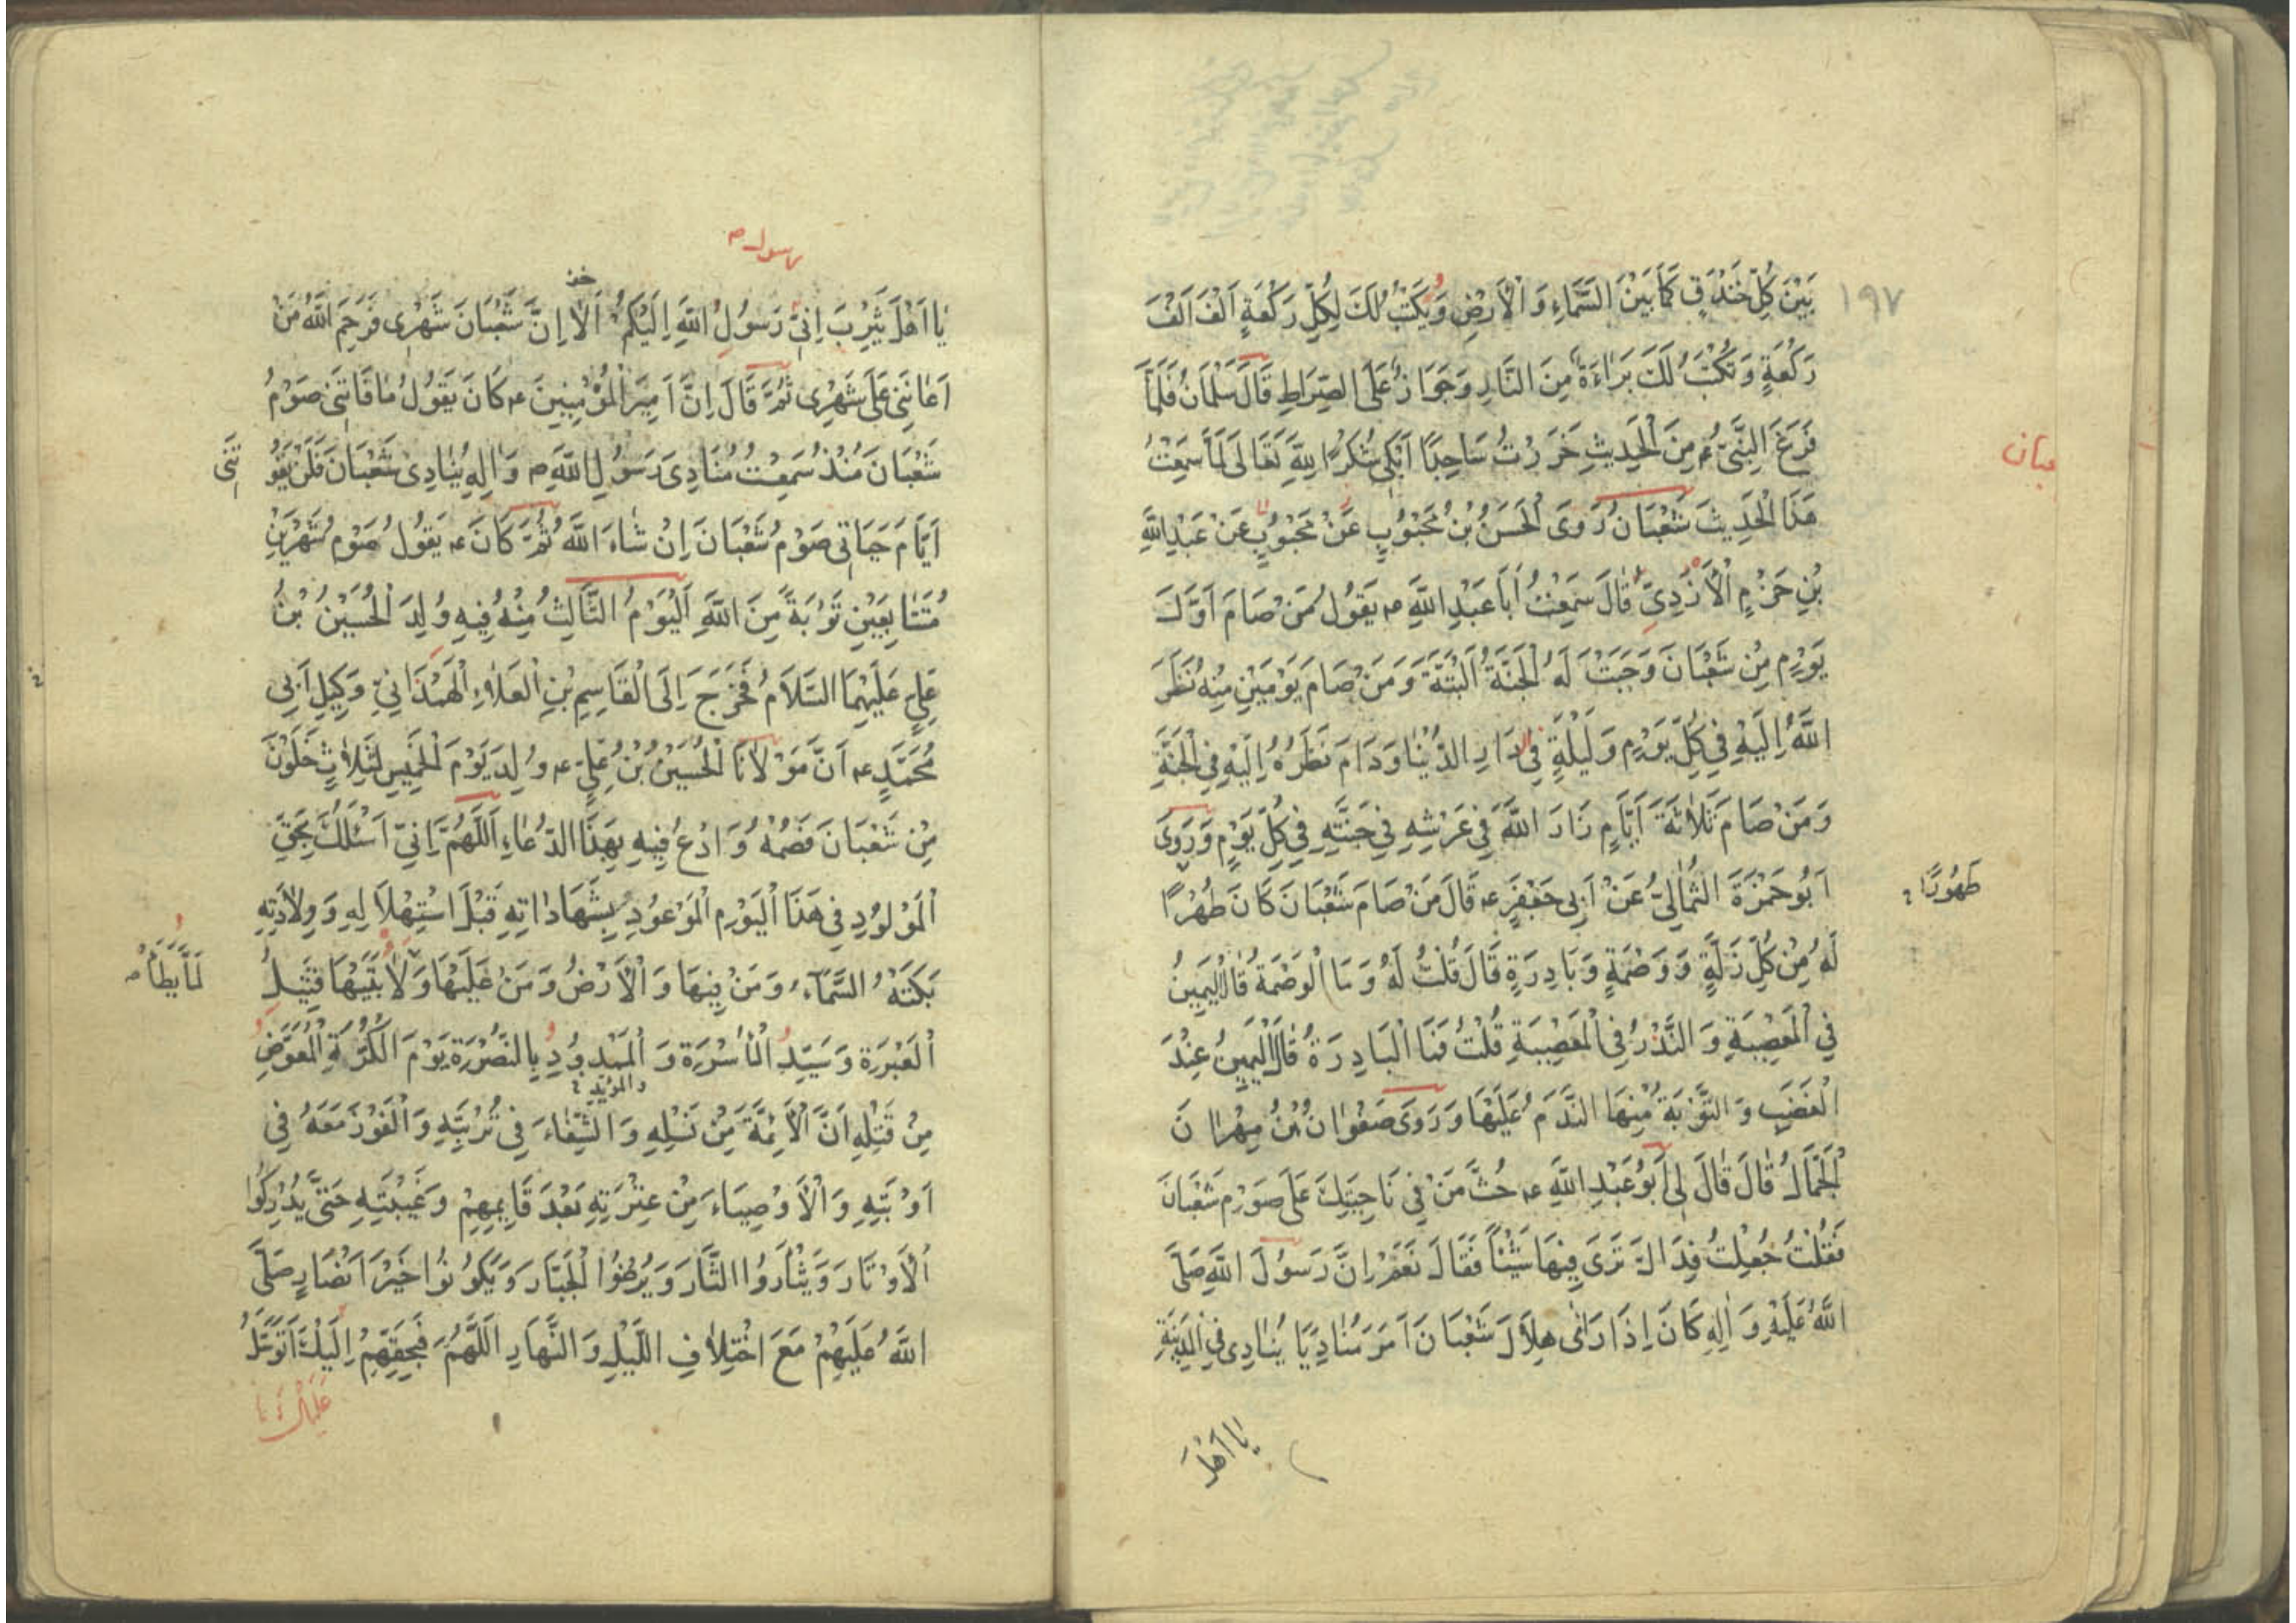 ١٩٧
بَيْنَ كُلِّ خَنْدَقٍ كَمَا بَيْنَ السَّمَاءِ وَ الْأَرْضِ وَ يَكْتُبُ لَكَ لِكُلِّ رَكْعَةٍ اَلْفَ اَلْفَ
رَكْعَةٍ وَ تُكْتَبُ لَكَ بَرَاءَةٌ مِنَ النَّارِ وَ جَوَازٌ عَلَى الصِّرَاطِ قَالَ سَلْمَانُ فَلَمَّا
فَرَغَ النَّبِيُّ ص مِنَ الْحَدِيثِ خَرَرْتُ سَاجِدًا اَبْكِي شُكْرًا لِلَّهِ تَعَالَى لَمَّا سَمِعْتُ
عبان
هَذَا الْحَدِيثَ شَعْبَانُ رَوَى الْحَسَنُ بْنُ مَحْبُوبٍ عَنْ مَحْبُوبٍ عَنْ عَبْدِ اللَّهِ
بْنِ حَزْمٍ الْأَزْدِيِّ قَالَ سَمِعْتُ اَبَا عَبْدِ اللَّهِ ع يَقُولُ مَنْ صَامَ اَوَّلَ
يَوْمٍ مِنْ شَعْبَانَ وَجَبَتْ لَهُ الْجَنَّةُ اَلْبَتَّةَ وَ مَنْ صَامَ يَوْمَيْنِ مِنْهُ نَظَرَ
اللَّهُ اِلَيْهِ فِي كُلِّ يَوْمٍ وَ لَيْلَةٍ فِي دَارِ الدُّنْيَا وَ دَامَ نَظَرُهُ اِلَيْهِ فِي الْجَنَّةِ
وَ مَنْ صَامَ ثَلَاثَةَ اَيَّامٍ زَارَ اللَّهَ فِي عَرْشِهِ فِي جَنَّتِهِ فِي كُلِّ يَوْمٍ وَ رَوَى
اَبُو حَمْزَةَ الثُّمَالِيُّ عَنْ اَبِي جَعْفَرٍ ع قَالَ مَنْ صَامَ شَعْبَانَ كَانَ طُهْرًا
طَهُورًا
لَهُ مِنْ كُلِّ زَلَّةٍ وَ وَصْمَةٍ وَ بَادِرَةٍ قَالَ قُلْتُ لَهُ وَ مَا الْوَصْمَةُ قَالَ الْيَمِينُ
فِي الْمَعْصِيَةِ وَ النَّذْرُ فِي الْمَعْصِيَةِ قُلْتُ فَمَا الْبَادِرَةُ قَالَ الْيَمِينُ عِنْدَ
الْغَضَبِ وَ التَّوْبَةُ مِنْهَا النَّدَمُ عَلَيْهَا وَ رَوَى صَفْوَانُ بْنُ مِهْرَانَ
الْجَمَّالُ قَالَ قَالَ لِي اَبُو عَبْدِ اللَّهِ ع حُثَّ مَنْ فِي نَاحِيَتِكَ عَلَى صَوْمِ شَعْبَانَ
فَقُلْتُ جُعِلْتُ فِدَاكَ تَرَى فِيهَا شَيْئًا فَقَالَ نَعَمْ اِنَّ رَسُولَ اللَّهِ صَلَّى
اللَّهُ عَلَيْهِ وَ اٰلِهِ كَانَ اِذَا رَاٰى هِلَالَ شَعْبَانَ اَمَرَ مُنَادِيًا يُنَادِي فِي الْمَدِينَةِ
يَا اَهْلَ
رسول ص
يَا اَهْلَ يَثْرِبَ اِنِّي رَسُولُ اللَّهِ اِلَيْكُمْ اَلَا اِنَّ شَعْبَانَ شَهْرِي فَرَحِمَ اللَّهُ مَنْ
اَعَانَنِي عَلَى شَهْرِي ثُمَّ قَالَ اِنَّ اَمِيرَ الْمُؤْمِنِينَ ع كَانَ يَقُولُ مَا فَاتَنِي صَوْمُ
شَعْبَانَ مُنْذُ سَمِعْتُ مُنَادِيَ رَسُولِ اللَّهِ ص وَ اٰلِهِ يُنَادِي شَعْبَانَ فَلَنْ يَفُو
تَنِي
اَيَّامَ حَيَاتِي صَوْمُ شَعْبَانَ اِنْ شَاءَ اللَّهُ ثُمَّ كَانَ ع يَقُولُ صَوْمُ شَهْرَيْنِ
مُتَتَابِعَيْنِ تَوْبَةً مِنَ اللَّهِ اَلْيَوْمُ الثَّالِثُ مِنْهُ فِيهِ وُلِدَ الْحُسَيْنُ بْنُ
عَلِيٍّ عَلَيْهِمَا السَّلَامُ فَخَرَجَ اِلَى الْقَاسِمِ بْنِ الْعَلَاءِ الْهَمْدَانِيِّ وَكِيلِ اَبِي
مُحَمَّدٍ ع اَنَّ مَوْلَانَا الْحُسَيْنُ بْنُ عَلِيٍّ ع وُلِدَ يَوْمَ الْخَمِيسِ لِثَلَاثٍ خَلَوْنَ
مِنْ شَعْبَانَ فَصُمْهُ وَ ادْعُ فِيهِ بِهَذَا الدُّعَاءِ اَللَّهُمَّ اِنِّي اَسْئَلُكَ بِحَقِّ
الْمَوْلُودِ فِي هَذَا الْيَوْمِ الْمَوْعُودِ بِشَهَادَاتِهِ قَبْلَ اسْتِهْلَالِهِ وَ وِلَادَتِهِ
بَكَتْهُ السَّمَاءُ وَ مَنْ فِيهَا وَ الْاَرْضُ وَ مَنْ عَلَيْهَا وَ لَابَتَيْهَا قَتِيلِ
لَمَّا يَطَأْ
الْعَبْرَةِ وَ سَيِّدِ الْاُسْرَةِ وَ الْمَمْدُودِ بِالنُّصْرَةِ يَوْمَ الْكَرَّةِ الْمُعَوَّضِ
و المؤيد
مِنْ قَتْلِهِ اَنَّ الْاَئِمَّةَ مِنْ نَسْلِهِ وَ الشِّفَاءَ فِي تُرْبَتِهِ وَ الْفَوْزَ مَعَهُ فِي
اَوْبَتِهِ وَ الْاَوْصِيَاءَ مِنْ عِتْرَتِهِ بَعْدَ قَايِمِهِمْ وَ غَيْبَتِهِ حَتَّى يُدْرِكُوا
الْاَوْتَارَ وَ يَثْاَرُوا الثَّارَ وَ يُرْضُوا الْجَبَّارَ وَ يَكُونُوا خَيْرَ اَنْصَارٍ صَلَّى
اللَّهُ عَلَيْهِمْ مَعَ اخْتِلَافِ اللَّيْلِ وَ النَّهَارِ اَللَّهُمَّ فَبِحَقِّهِمْ اِلَيْكَ اَتَوَسَّلُ